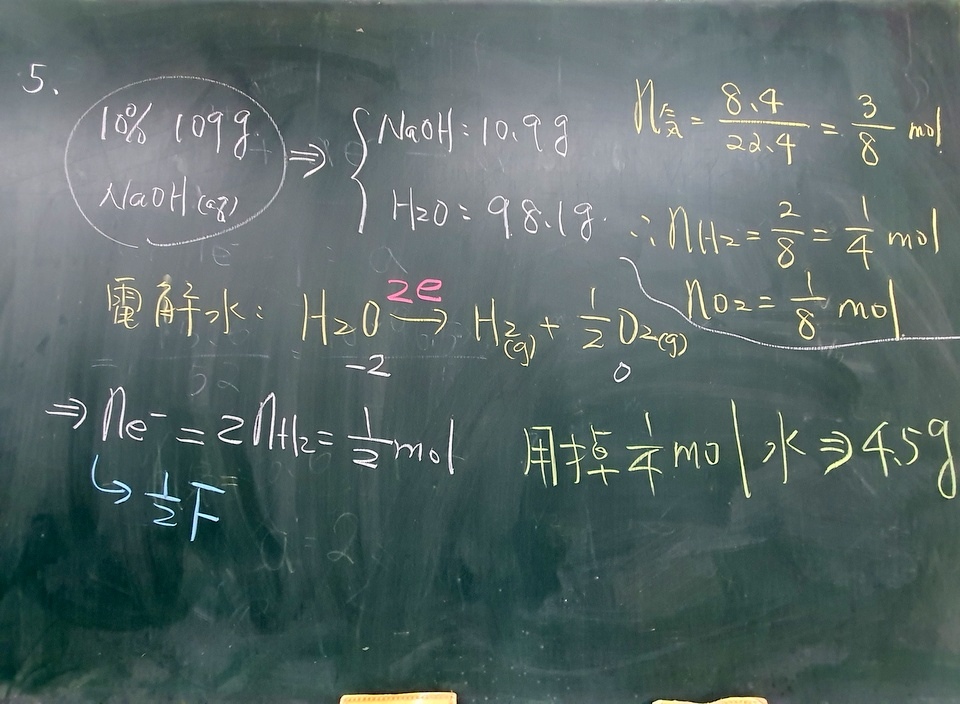 5.
10% 109g
NaOH(aq)
⇒ { NaOH: 10.9g
H2O: 98.1g.
n氣 = 8.4/22.4 = 3/8 mol
∴ nH2 = 2/8 = 1/4 mol
nO2 = 1/8 mol
電解水: H2O 2e→ H2(g) + 1/2 O2(g)
-2 0
⇒ ne- = 2nH2 = 1/2 mol
↳ 1/2 F
用掉 1/4 mol 水 ⇒ 4.5g